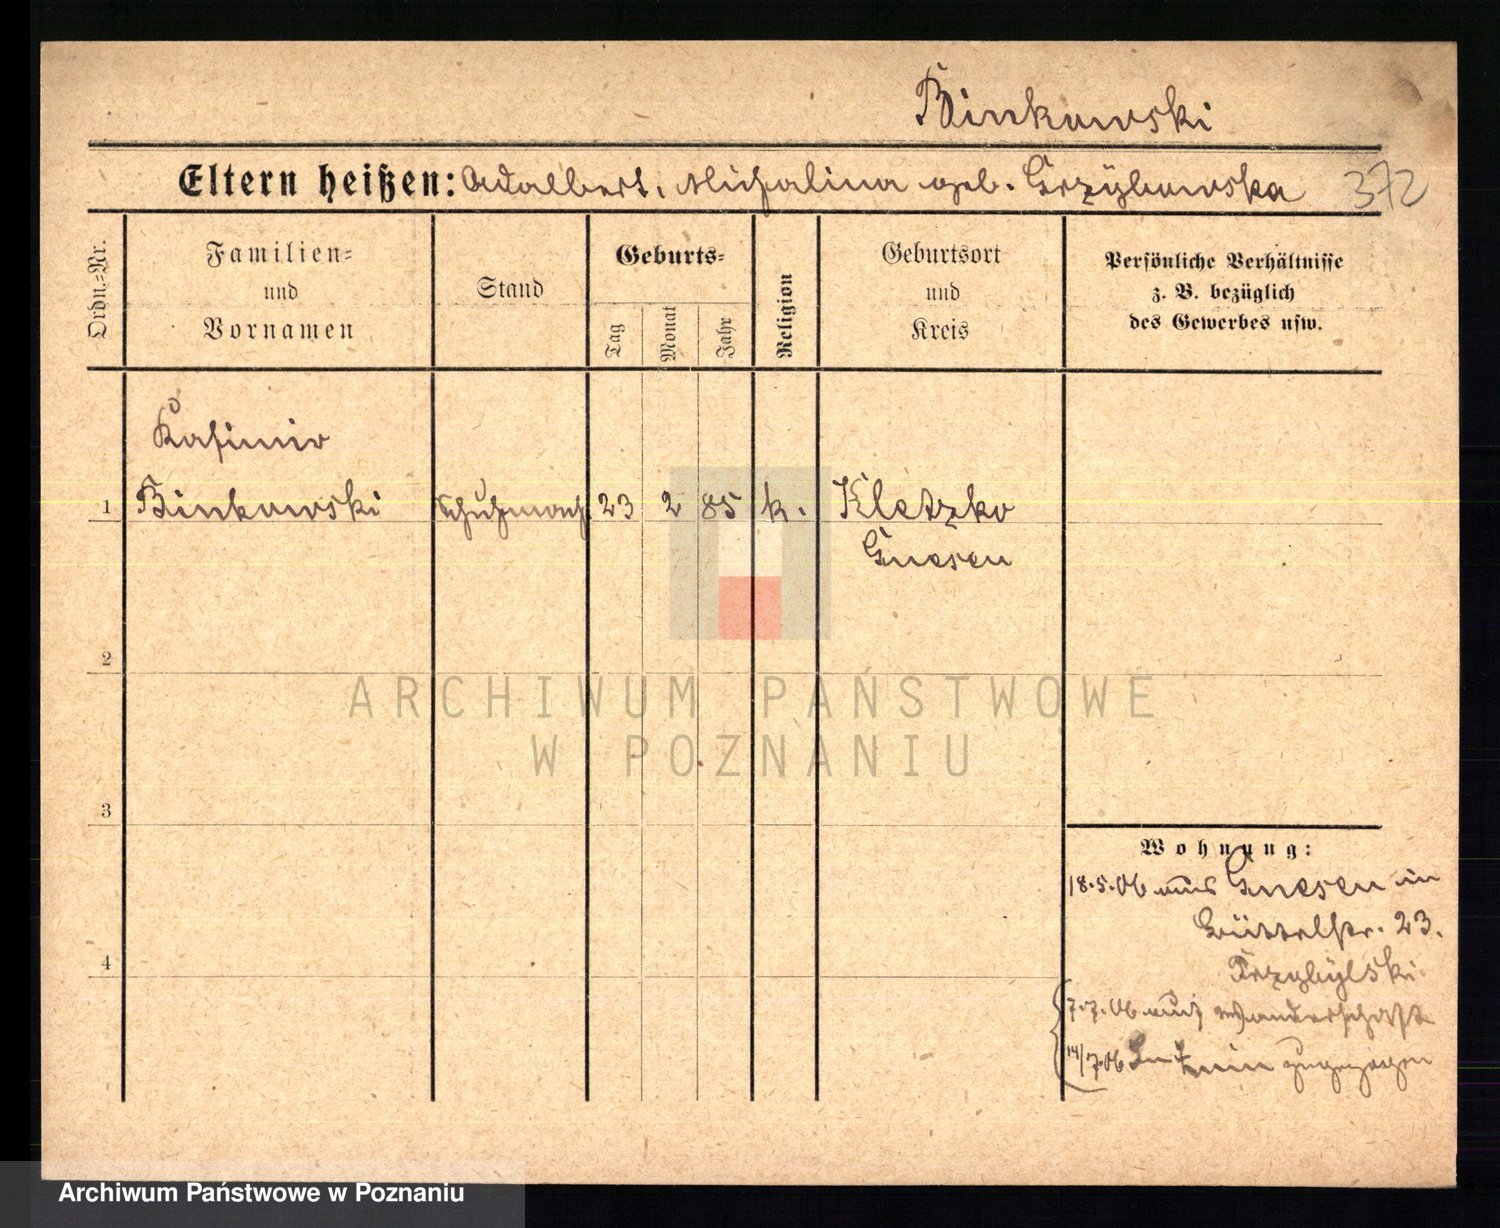 Binkowski
Eltern heißen: Adalbert, Michalina geb. Grzybowska 372
Ordn.-Nr.
Familien-
und
Vornamen
Stand
Geburts-
Tag
Monat
Jahr
Religion
Geburtsort
und
Kreis
Persönliche Verhältnisse
z. B. bezüglich
des Gewerbes usw.
Kasimir
1 Binkowski Schuhmach. 23 2 85 k. Kletzko
Gnesen
2
3
4
Wohnung:
18.5.06 aus Gnesen in
23.
7.7.06 auf Wanderschaft
14/7.06 zugezogen
ARCHIWUM PAŃSTWOWE
W POZNANIU
Archiwum Państwowe w Poznaniu